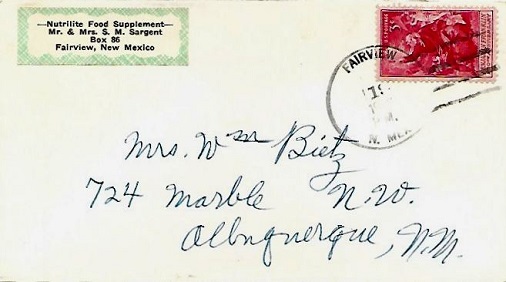 —Nutrilite Food Supplement—
Mr. & Mrs. S. M. Sargent
Box 86
Fairview, New Mexico
FAIRVIEW
19
M.
N. MEX
3¢
Mrs. Wm Bietz
724 Marble N.W.
Albuquerque, N.M.